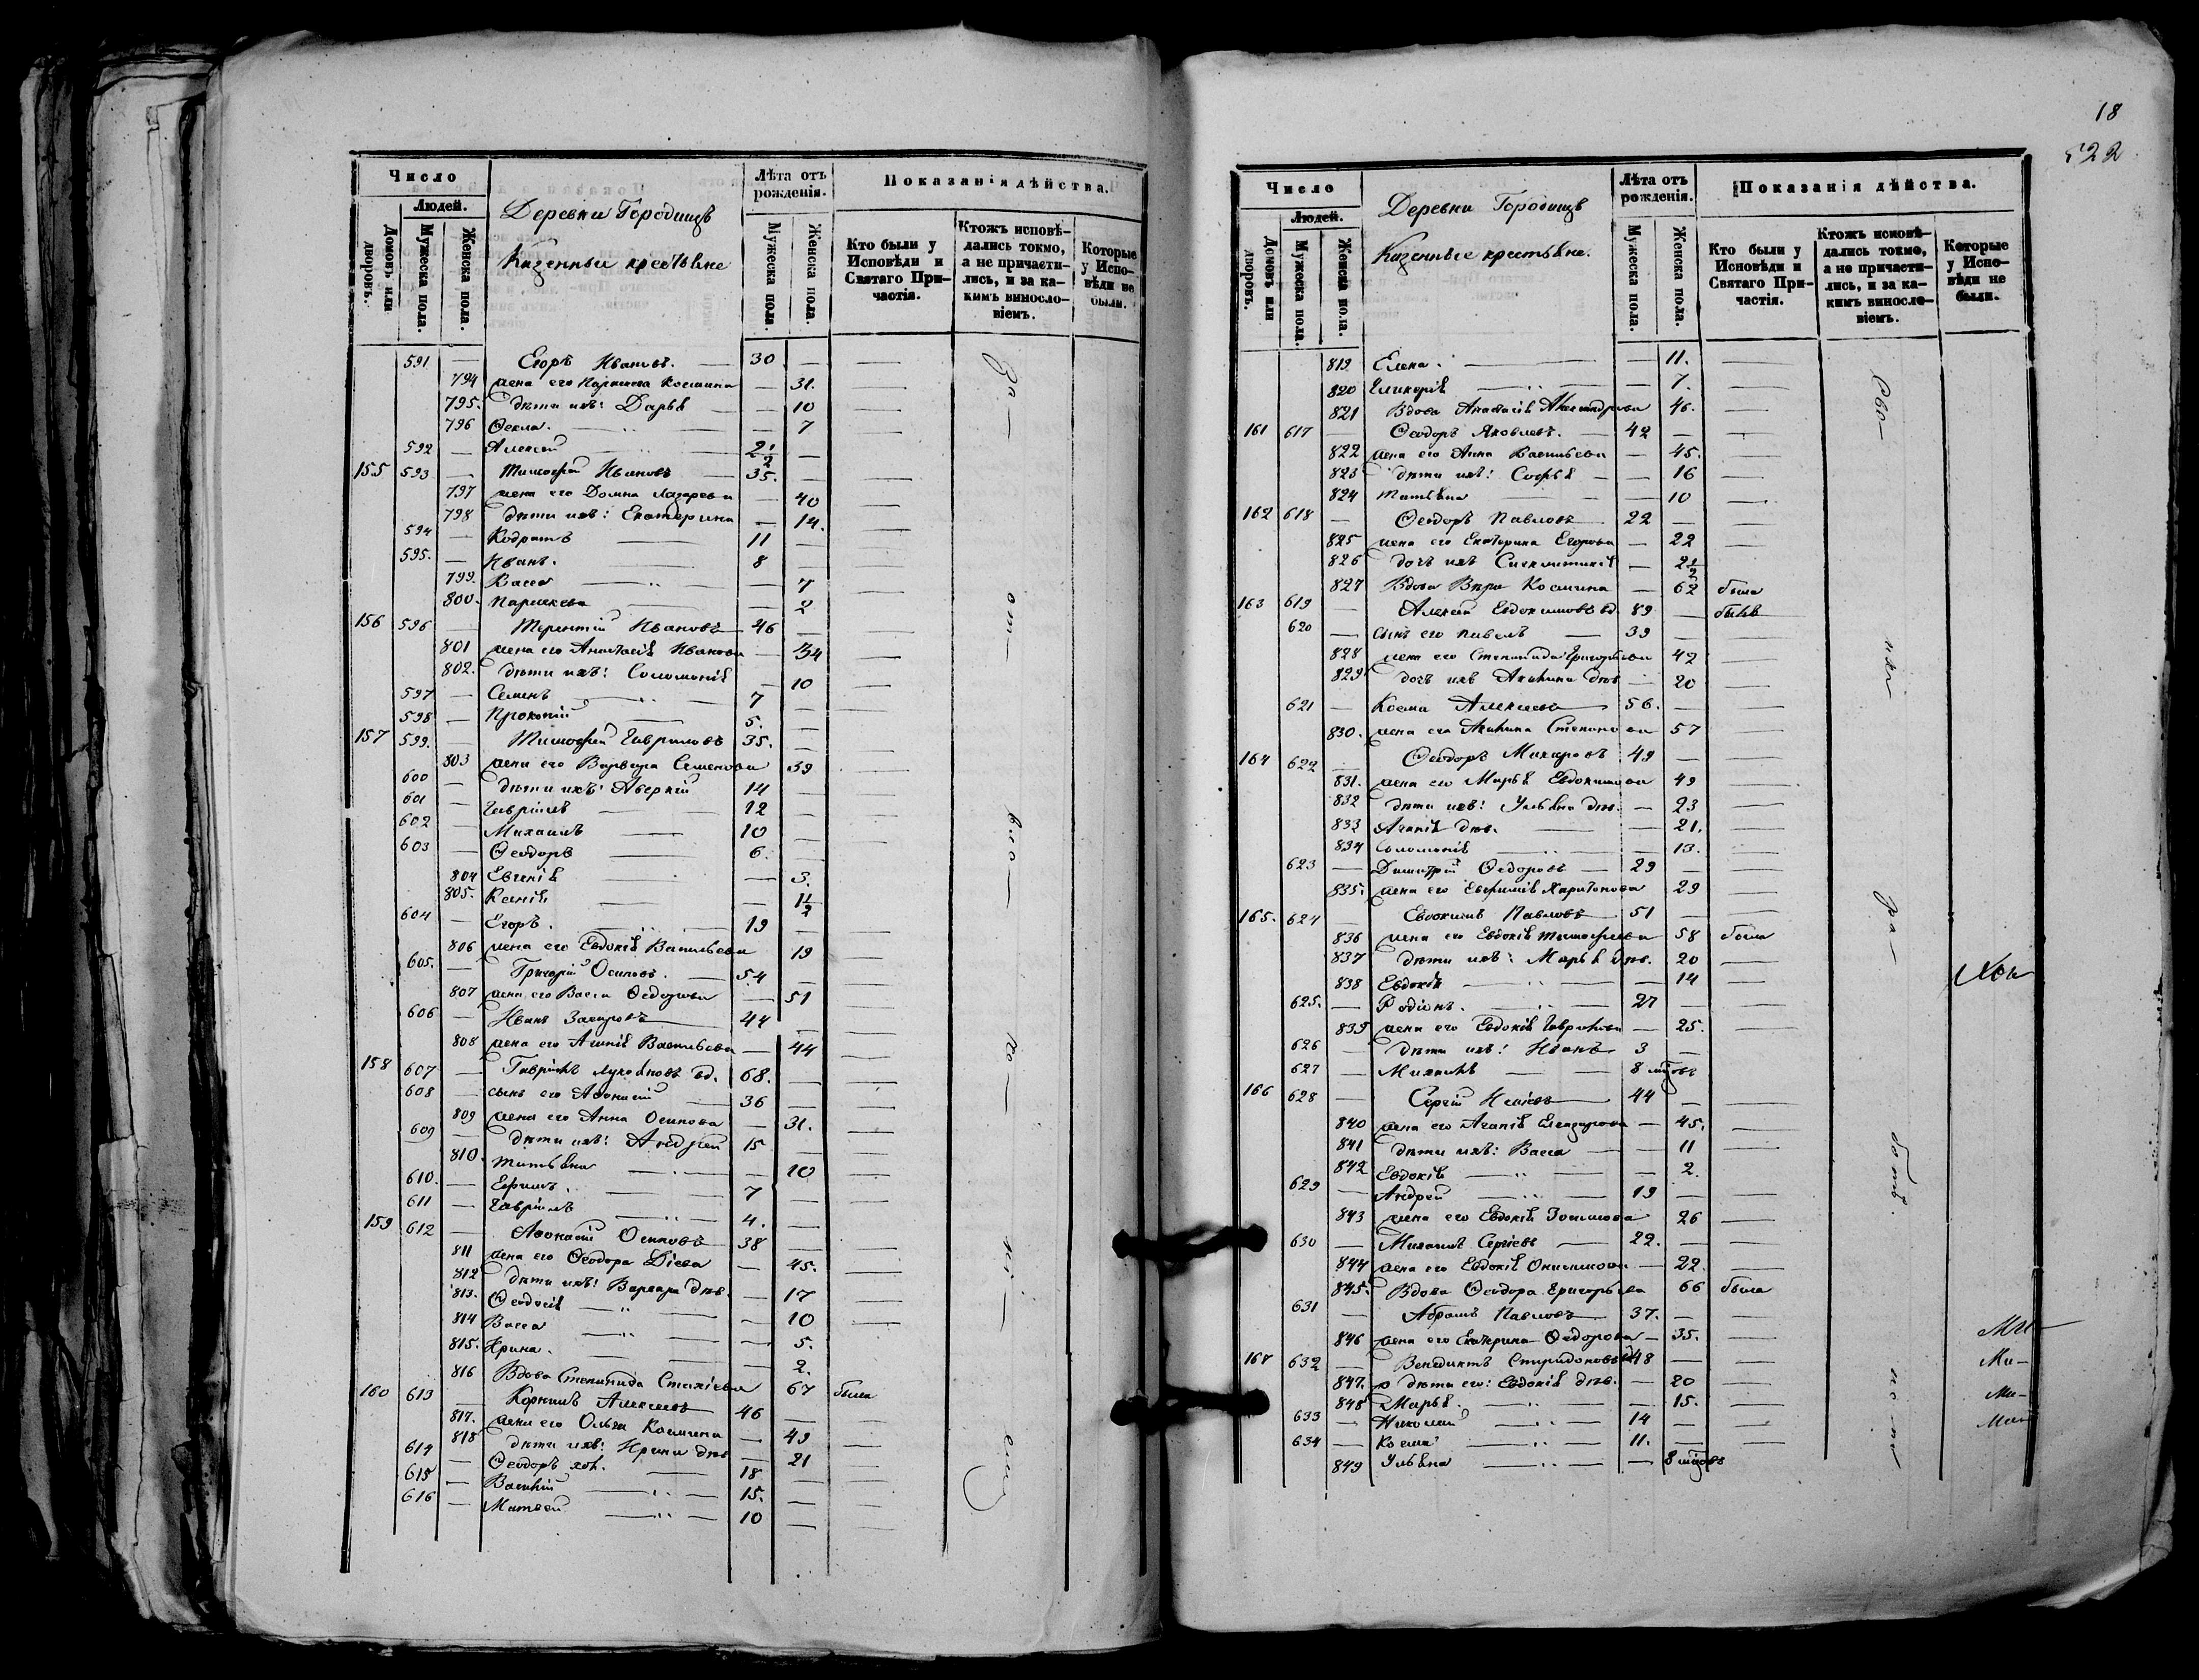 Число
Людей.
Домовъ или дворовъ.
Мужеска пола.
Женска пола.
Деревни Городищѣ
Казенные крестьяне
Лѣта отъ рожденія.
Мужеска пола.
Женска пола.
Показанія дѣйства.
Кто были у Исповѣди и Святаго Причастія.
Ктожъ исповѣдались токмо, а не причастились, и за какимъ винословіемъ.
Которые у Исповѣди не были.
591 — Егоръ Ивановъ. — 30 —
794 жена его Параскева Космина — 31. —
795. дѣти ихъ: Дарья — — 10 —
796 Ѳекла. — 7 —
592 — Алексѣй — 2 1/2 —
155 593 — Тимоѳей Ивановъ — 35. — —
797 жена его Домна Лазарева — 40 —
798 дѣти ихъ: Екатерина — 14. —
594 — Кодратъ — 11 —
595. — Иванъ. — 8 —
799. Васса — — 7 —
800. Параскева — — 2
156 596 — Терентій Ивановъ — 46 —
801 жена его Анастасія Иванова — 34 —
802. дѣти ихъ: Соломонія — 10 —
597 — Семенъ — 7 —
598 — Прокопій — 5. —
157 599. — Тимоѳей Гавриловъ 35. —
803 жена его Варвара Семенова 39 —
600 — дѣти ихъ: Аверкій 14 —
601 — Гавріилъ — 12 —
602 — Михаилъ — 10 —
603 — Ѳеодоръ — 6. —
804 Евгенія — — 3.
805. Ксенія — — 1 1/2
604 — Егоръ. — 19 —
806 жена его Евдокія Васильева 19 —
605. — Григорій Осиповъ. — 54 —
807 жена его Васса Ѳедорова — 51 —
606 — Иванъ — 44 —
808 жена его Агапія Васильева — 44 —
158 607 — Гавріилъ вд. 68. —
608 — сынъ его Аѳонасій 36 —
809 жена его Анна Осипова — 31. —
609 — дѣти ихъ: Андрей 15 —
810. Татьяна — 10 —
610. — Ефимъ. — 7 —
611 — Гавріилъ — 4. —
159 612 — Аѳонасій Осиповъ 38 —
811 жена его Ѳеодора Діева — 45. —
812 дѣти ихъ: Варвара двк. — 17 —
813. Ѳеодосія — 10 —
814 Васса — 5.
815. Ирина. — 2.
816 Вдова Степанида Стахіева 67 была
160 613 — Корнилъ Алексѣевъ 46 —
817. жена его Ольга Космина — 49 —
818 дѣти ихъ: Ирина двк — 21 —
614 — Ѳеодоръ хол. — 18 —
615 — Василій — 15. —
616 — Матвей — 10 —
За— от— лу— чкою
18
522
Число
Людей.
Домовъ или дворовъ.
Мужеска пола.
Женска пола.
Деревни Городищѣ
Казенные крестьяне.
Лѣта отъ рожденія.
Мужеска пола.
Женска пола.
Показанія дѣйства.
Кто были у Исповѣди и Святаго Причастія.
Ктожъ исповѣдались токмо, а не причастились, и за какимъ винословіемъ.
Которые у Исповѣди не были.
819 Елена. — — 11. —
820 Гликерія — — 7. —
821 Вдова Анастасія Александрова 46. —
161 617 — Ѳеодоръ Яковлевъ. — 42 — —
822 жена его Анна Васильева — 45. —
823 дѣти ихъ: Софья — — 16 —
824 Татьяна — 10 —
162 618 — Ѳеодоръ Павловъ 22 — —
825 жена его Екатерина Егорова — 22 —
826 дочь ихъ Синклитикія — 2 1/2
827 Вдова Вѣра Космина — 62 была
163 619 — Алексѣй Евдокимовъ вд. 89 — былъ
620 — сынъ его Павелъ — 39 — —
828 жена его Степанида Григорьева 42 —
829 дочь ихъ Акилина двк — 20 —
621 — Косма Алексѣевъ 56. — —
830. жена его Акилина Степанова 57 —
164 622 — Ѳеодоръ Макаровъ 49 — —
831. жена его Марья Евдокимова 49 —
832 дѣти ихъ: Ульяна двк. — 23 —
833 Агапія двк. — 21. —
834 Соломонія — 13. —
623 — Димитрій Ѳедоровъ — 29 — —
835. жена его Евфимія Харитонова 29 —
165. 624 — Евдокимъ Павловъ 51 — —
836 жена его Евдокія Тимоѳеева 58 была
837 дѣти ихъ: Марья двк. 20 —
838 Евдокія — 14 —
625. — Родіонъ. — 27 — —
839 жена его Евдокія Гаврилова — 25. —
626 — дѣти ихъ: Иванъ 3 —
627 — Михаилъ — 8 мцовъ
166 628 — Сергій Исаіевъ 44 — —
840 жена его Агапія Елеазарова — 45. —
841 дѣти ихъ: Васса — 11 —
842 Евдокія — 2. —
629 — Андрей — 19 — —
843 жена его Евдокія Зотимова 26 —
630 — Михаилъ Сергіевъ — 22. — —
844 жена его Евдокія Онисимова — 22. —
845. Вдова Ѳеодора Григорьева 66 была
631 — Абрамъ Павловъ 37. — —
846 жена его Екатерина Ѳедорова — 35. —
167 632 — Венедиктъ Спиридоновъ 48 — —
847. дѣти его: Евдокія двк. — 20 —
848 Марья. — 15. —
633 — Николай — 14 — —
634 — Косма — 11. — —
849 Ульяна — — 8 мцовъ